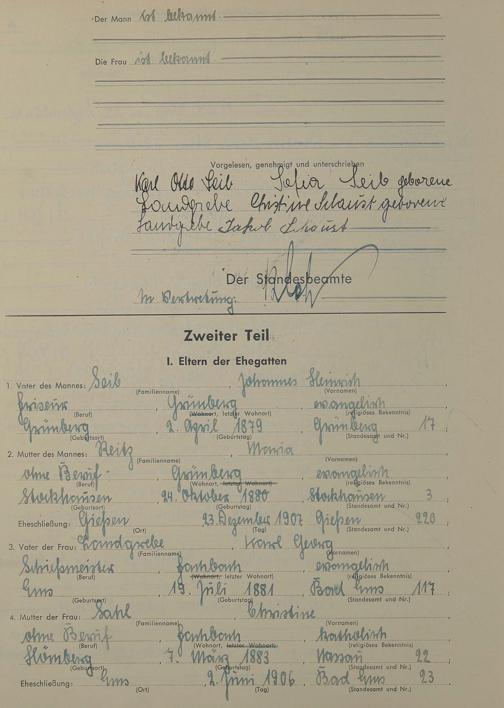 Der Mann ist bekannt
Die Frau ist bekannt
Vorgelesen, genehmigt und unterschrieben
Karl Otto Seib Sofia Seib geborene
Landgrebe Christine Schaust geborene
Landgrebe Jakob Schaust
Der Standesbeamte
In Vertretung:
Zweiter Teil
I. Eltern der Ehegatten
1. Vater des Mannes: Seib Johannes Heinrich
(Familienname) (Vornamen)
Friseur Grünberg evangelisch
(Beruf) (Wohnort, letzter Wohnort) (religiöses Bekenntnis)
Grünberg 2. April 1879 Grünberg 17
(Geburtsort) (Geburtstag) (Standesamt und Nr.)
2. Mutter des Mannes: Reitz Maria
(Familienname) (Vornamen)
ohne Beruf Grünberg evangelisch
(Beruf) (Wohnort, letzter Wohnort) (religiöses Bekenntnis)
Stockhausen 24. Oktober 1880 Stockhausen 3
(Geburtsort) (Geburtstag) (Standesamt und Nr.)
Eheschließung: Gießen 23. Dezember 1907 Gießen 220
(Ort) (Tag) (Standesamt und Nr.)
3. Vater der Frau: Landgrebe Karl Georg
(Familienname) (Vornamen)
Schießmeister Fachbach evangelisch
(Beruf) (Wohnort, letzter Wohnort) (religiöses Bekenntnis)
Ems 19. Juli 1881 Bad Ems 117
(Geburtsort) (Geburtstag) (Standesamt und Nr.)
4. Mutter der Frau: Sahl Christine
(Familienname) (Vornamen)
ohne Beruf Fachbach katholisch
(Beruf) (Wohnort, letzter Wohnort) (religiöses Bekenntnis)
Hömberg 7. März 1883 Nassau 22
(Geburtsort) (Geburtstag) (Standesamt und Nr.)
Eheschließung: Ems 2. Juni 1906 Bad Ems 23
(Ort) (Tag) (Standesamt und Nr.)